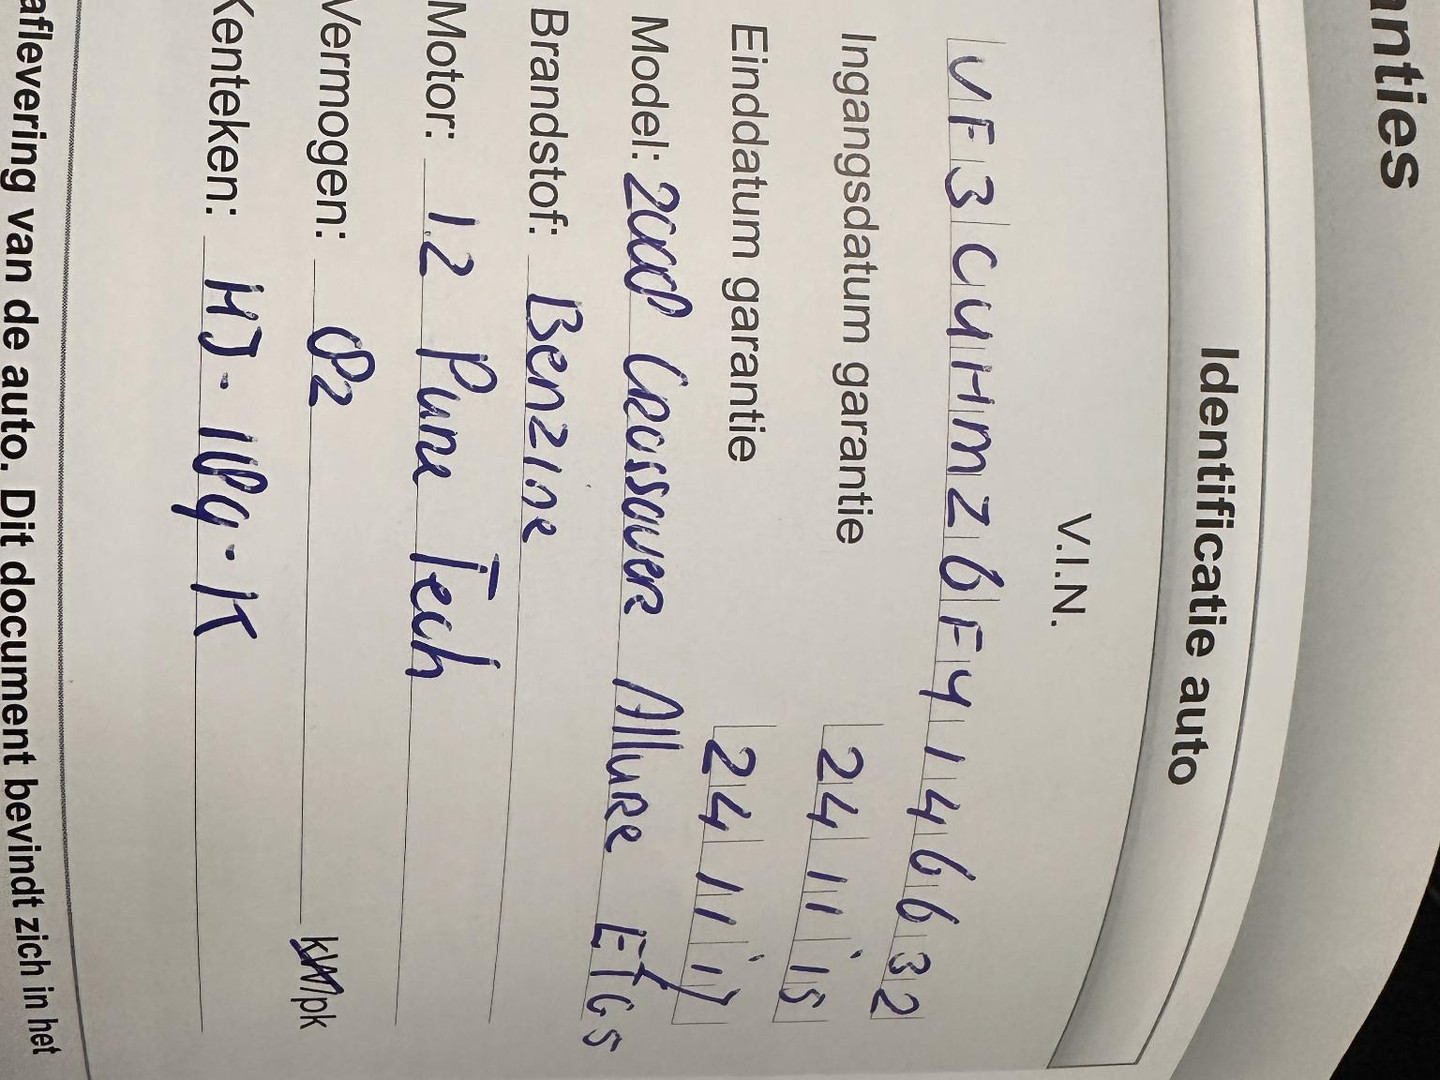 anties
Identificatie auto
V.I.N.
VF3CUHMZ6FY146632
Ingangsdatum garantie 24 11 15
Einddatum garantie 24 11 17
Model: 2008 Crossover Allure ETG5
Brandstof: Benzine
Motor: 1.2 Pure Tech
Vermogen: 82 kW/pk
Kenteken: HJ-189-K
aflevering van de auto. Dit document bevindt zich in het